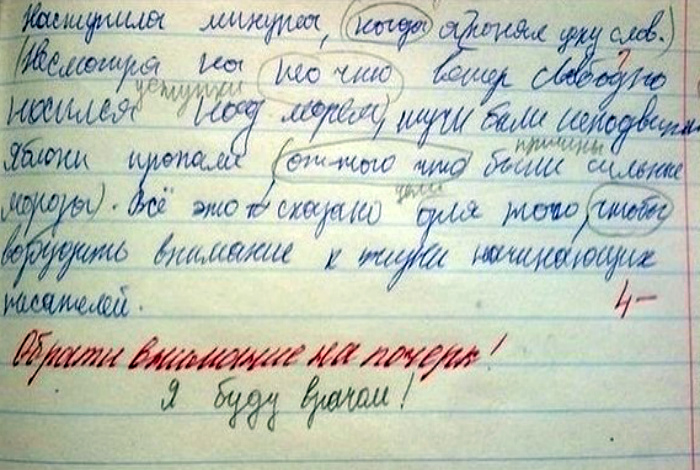 Наступила минута, (когда я понял цену слов.)
(Несмотря на то что ветер свободно
уступки
носился над морем), тучи были неподвижны
причины
Яблони пропали (от того что были сильные
цели
морозы). Всё это сказано для того, чтобы
возбудить внимание к жизни начинающих
писателей.
4-
Обрати внимание на почерк!
Я буду врачом!